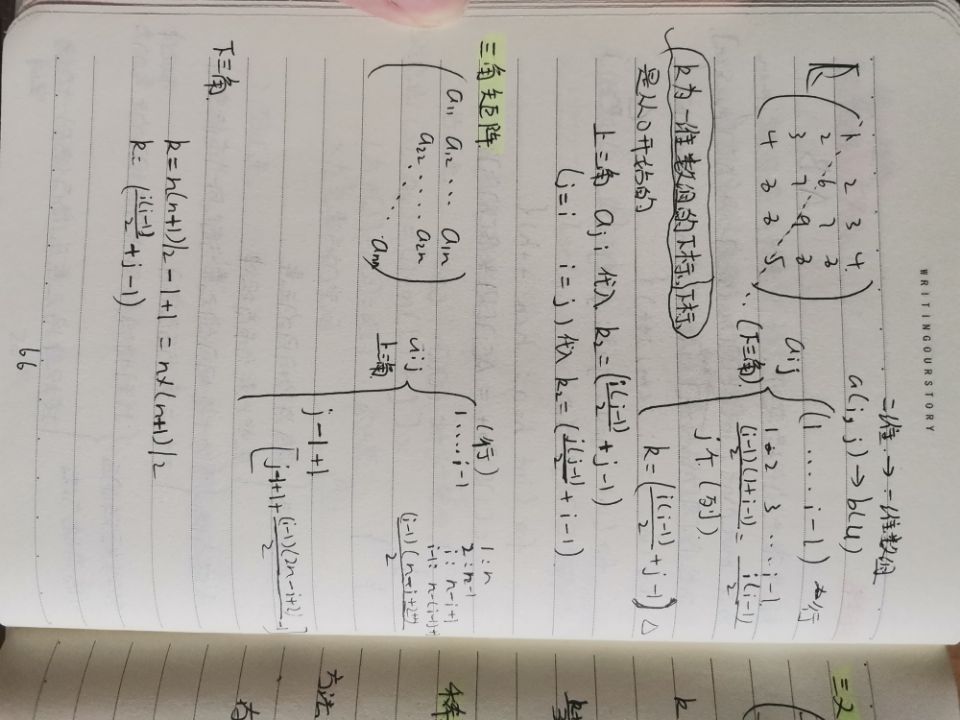 WRITINGOURSTORY
二维→一维数组
a(i,j)→b(k)
1 2 3 4
2 6 7 8
3 7 9 8
4 8 8 5
aij (下三角)
(1....i-1) 为行
1+2 3 ... i-1
(i-1)(1+i-1)/2 = i(i-1)/2
j个(列)
k=(i(i-1)/2+j-1) △
k为一维数组的下标,下标
是从0开始的
上三角 aji 代入 k2=(i(j-1)/2+j-1)
(j=i i=j)代入 k2=(j(j-1)/2+i-1)
三角矩阵
a11 a12 ... a1n
a22 .... a2n
ann
aij
上三角
(行)
1....i-1
1:n
2:n-1
i: n-i+1
(i-1)(n-i+2+n)/2
j-i+1
[j-i+1+(i-1)(2n-i+2)/2-1]
下三角
k=n(n+1)/2-1+1=n×(n+1)/2
k=(i(i-1)/2+j-1)
66
三叉
方法